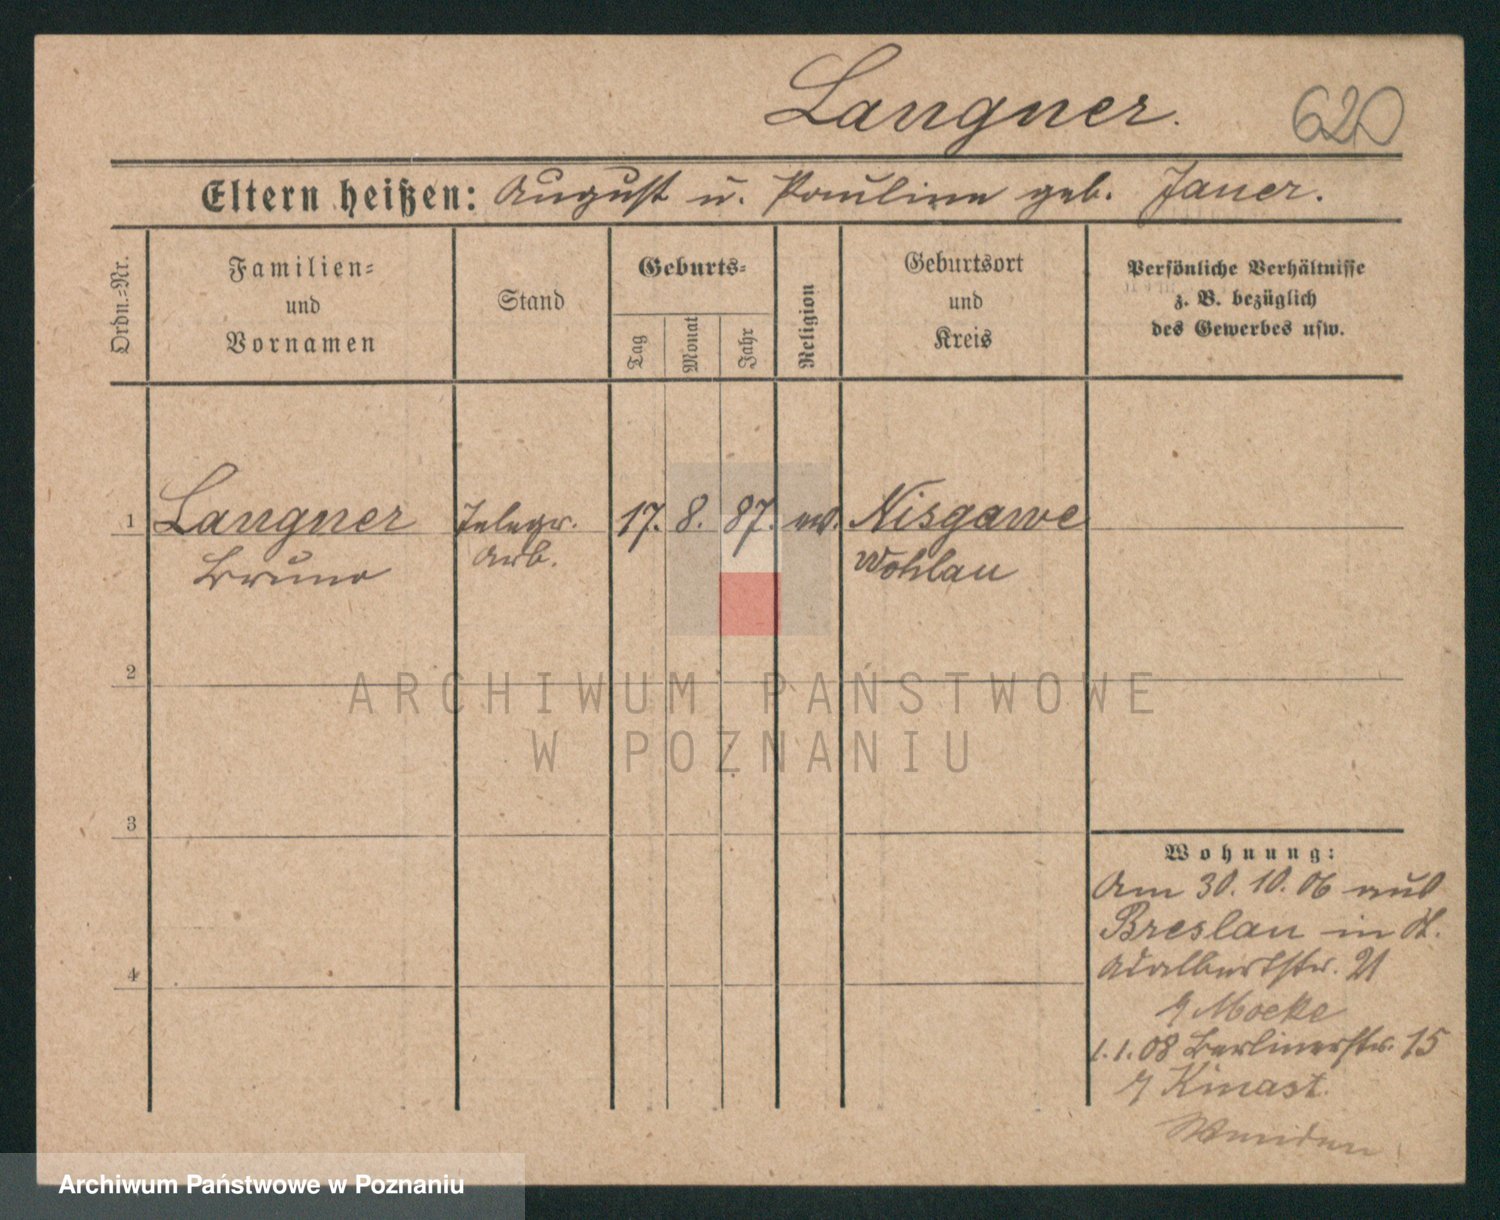 Langner.
620
Eltern heißen: August u. Pauline geb. Janer.
Ordn.-Nr.
Familien-
und
Vornamen
Stand
Geburts-
Tag
Monat
Jahr
Religion
Geburtsort
und
Kreis
Persönliche Verhältnisse
z. B. bezüglich
des Gewerbes usw.
1 Langner Telegr. 17. 8. 87. ev. Nisgawe
Bruno Arb. Wohlau
2
3
4
ARCHIWUM PAŃSTWOWE
W POZNANIU
Wohnung:
Am 30. 10. 06 aus
Breslau in
Adalbertstr. 21
Mocke
1. 1. 08 Berlinerstr. 15
Kinast
Archiwum Państwowe w Poznaniu